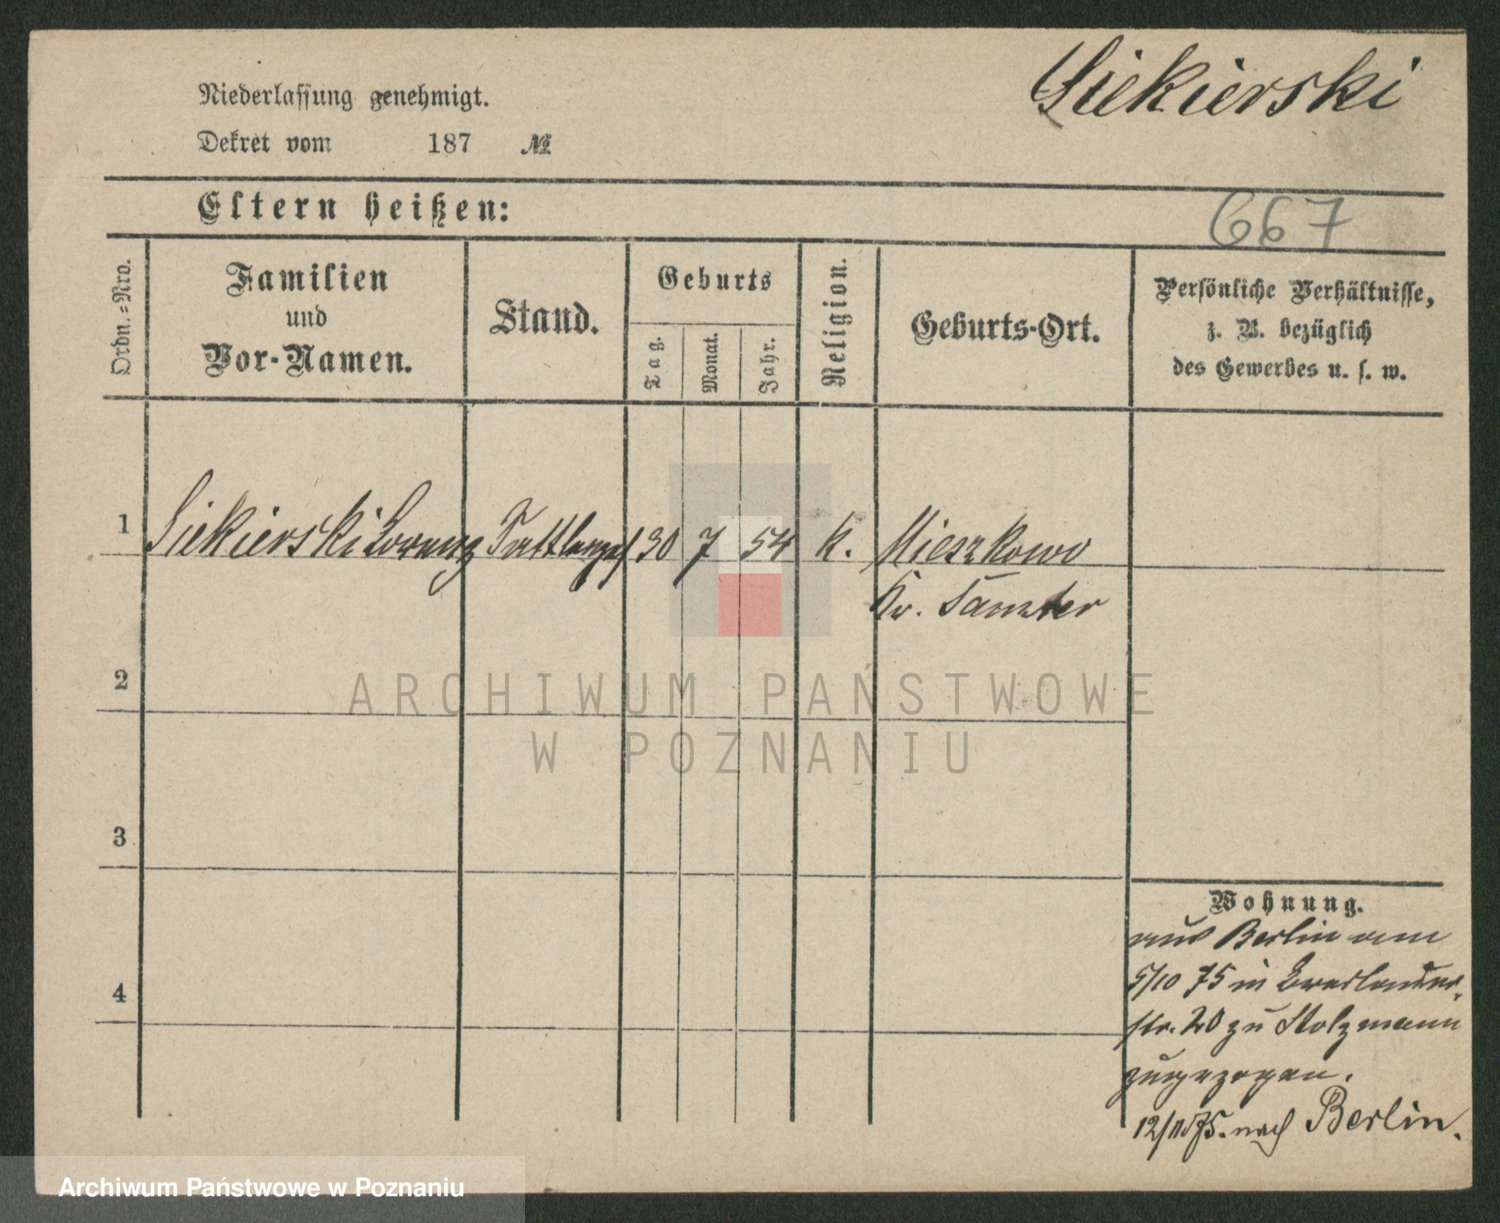 Siekierski
Niederlassung genehmigt.
Dekret vom 187 №
Eltern heißen:
667
Ordn.-Nro.
Familien
und
Vor-Namen.
Stand.
Geburts
Tag.
Monat.
Jahr.
Religion.
Geburts-Ort.
Persönliche Verhältnisse,
z. B. bezüglich
des Gewerbes u. s. w.
1 Siekierski Lorenz 30 7 54 k. Mieszkowo
Kr. Samter
2
ARCHIWUM PAŃSTWOWE
W POZNANIU
3
Wohnung.
aus Berlin am
5/10 75 in
str. 20 zu Holzmann
zugezogen.
4
12/10 75. nach Berlin.
Archiwum Państwowe w Poznaniu